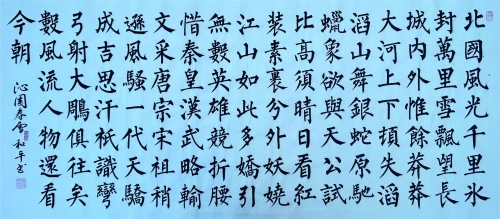 北國風光千里氷
封萬里雪飄望長
城内外惟餘莽莽
大河上下頓失滔
滔山舞銀蛇原馳
蠟象欲與天公試
比高須晴日看紅
裝素裹分外妖嬈
江山如此多嬌引
無數英雄競折腰
惜秦皇漢武略輸
文采唐宗宋祖稍
遜風騷一代天驕
成吉思汗衹識彎
弓射大鵰俱往矣
數風流人物還看
今朝
沁園春雪 和平书